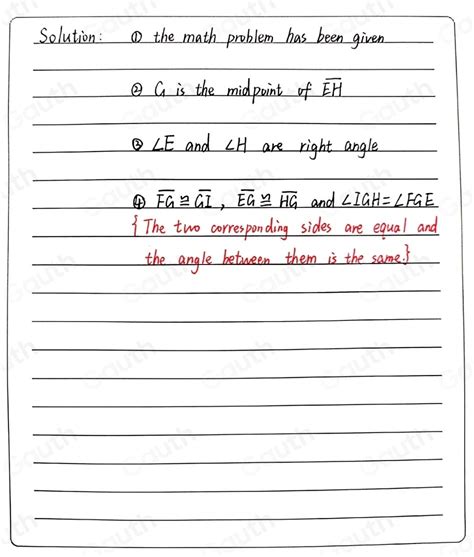 Solution: ① the math problem has been given
② G is the midpoint of EH
③ ∠E and ∠H are right angle
④ FG ≅ GI, EG ≅ HG and ∠IGH=∠FGE
{The two corresponding sides are equal and
the angle between them is the same.}
Gauth